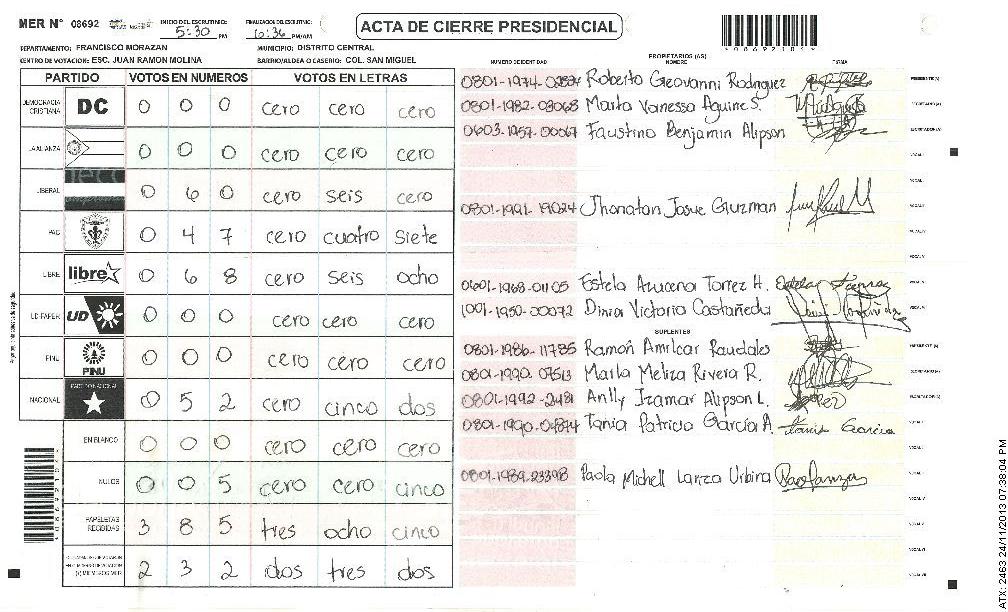 MER N° 08692
INICIO DEL ESCRUTINIO: 5:30 PM
FINALIZACION DEL ESCRUTINIO: 6:36 PM/AM
ACTA DE CIERRE PRESIDENCIAL
*086921019*
DEPARTAMENTO: FRANCISCO MORAZAN
MUNICIPIO: DISTRITO CENTRAL
CENTRO DE VOTACION: ESC. JUAN RAMON MOLINA
BARRIO/ALDEA O CASERIO: COL. SAN MIGUEL
PARTIDO VOTOS EN NUMEROS VOTOS EN LETRAS
DEMOCRACIA CRISTIANA DC 0 0 0 cero cero cero
LA ALIANZA 0 0 0 cero cero cero
LIBERAL 0 6 0 cero seis cero
PAC 0 4 7 cero cuatro siete
LIBRE libre 0 6 8 cero seis ocho
UD-FAPER UD 0 0 0 cero cero cero
PINU PINU 0 0 0 cero cero cero
NACIONAL PARTIDO NACIONAL 0 5 2 cero cinco dos
EN BLANCO 0 0 0 cero cero cero
NULOS 0 0 5 cero cero cinco
PAPELETAS RECIBIDAS 3 8 5 tres ocho cinco
2 3 2 dos tres dos
NUMERO DE IDENTIDAD PROPIETARIOS (AS) NOMBRE FIRMA
Roberto Geovanni Rodriguez PRESIDENTE(A)
0801-1982-03068 Marta Vanessa Aguire S. SECRETARIO (A)
0603-1957-00067 Faustino Benjamin Alipson ESCRUTADOR(A)
VOCAL I
0801-1991-19024 Jhonatan Josue Guzman
0601-1968-01105 Estela Azucena Torrez H.
1001-1950-00072 Dinia Victoria Castañeda
SUPLENTES
0801-1986-11785 Ramon Amilcar Raudales
0801-1990-07513 Marla Meliza Rivera R. SECRETARIO(A)
Anlly Izamar Alipson L. ESCRUTADOR(A)
Tania Patricia García A. Tania Garcia
0801-1989-23398 Paola Michell Lanza Urbina
ATX: 2463 24/11/2013 07:38:04 PM